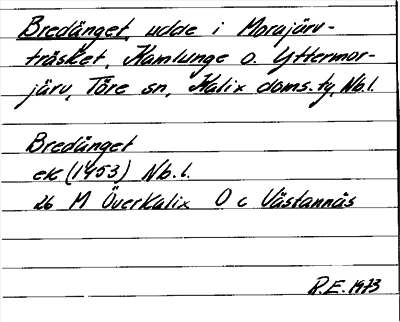 Bredänget, udde i Morajärv-
träsket, Kamlunge o. Yttermor-
järv, Töre sn, Kalix doms.ty, Nb.l.
Bredänget
ek (1953) Nb.l.
26 M Överkalix O c Västannäs
R.E. 1973